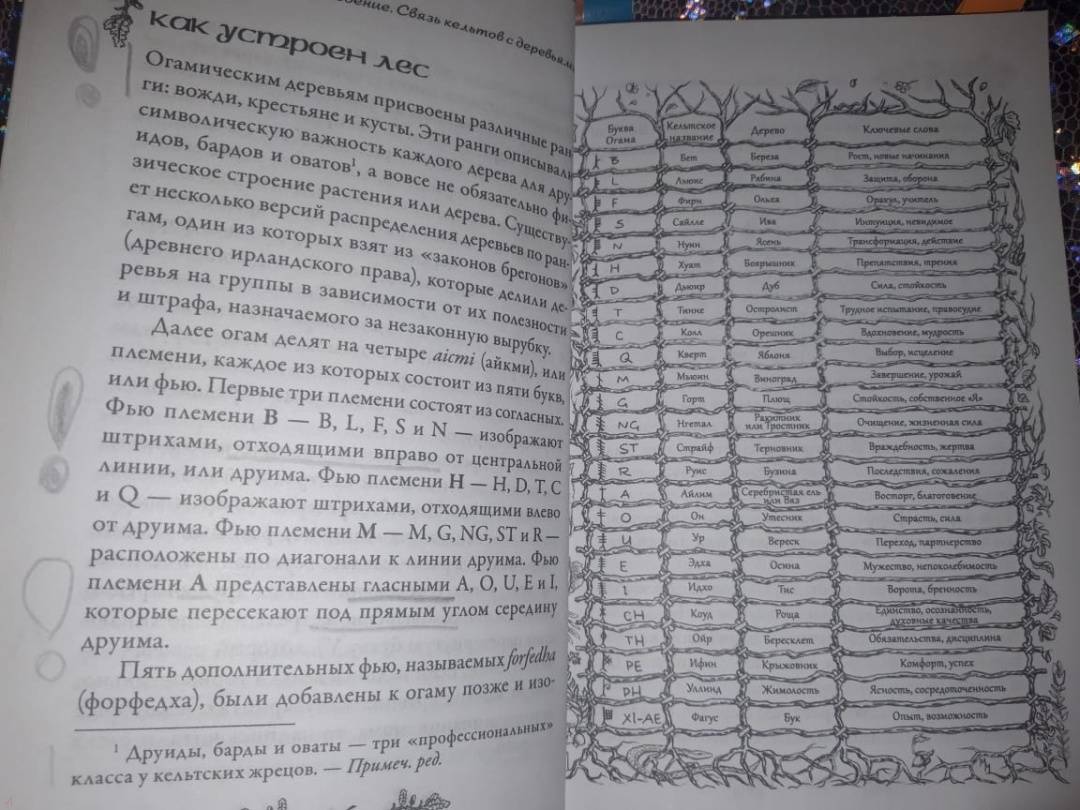 Связь кельтов с деревьями
как устроен лес
Огамическим деревьям присвоены различные ран-
ги: вожди, крестьяне и кусты. Эти ранги описывали
символическую важность каждого дерева для дру-
идов, бардов и оватов¹, а вовсе не обязательно фи-
зическое строение растения или дерева. Существу-
ет несколько версий распределения деревьев по ран-
гам, один из которых взят из «законов брегонов»
(древнего ирландского права), которые делили де-
ревья на группы в зависимости от их полезности
и штрафа, назначаемого за незаконную вырубку.
Далее огам делят на четыре aicmi (айкми), или
племени, каждое из которых состоит из пяти букв,
или фью. Первые три племени состоят из согласных.
Фью племени B — B, L, F, S и N — изображают
штрихами, отходящими вправо от центральной
линии, или друима. Фью племени H — H, D, T, C
и Q — изображают штрихами, отходящими влево
от друима. Фью племени M — M, G, NG, ST и R —
расположены по диагонали к линии друима. Фью
племени A представлены гласными A, O, U, E и I,
которые пересекают под прямым углом середину
друима.
Пять дополнительных фью, называемых forfedha
(форфедха), были добавлены к огаму позже и изо-
¹ Друиды, барды и оваты — три «профессиональных»
класса у кельтских жрецов. — Примеч. ред.
Буква Огама Кельтское название Дерево Ключевые слова
B Бет Береза Рост, новые начинания
L Луис Рябина Защита, оборона
F Фирн Ольха Оракул, учитель
S Сайлле Ива Интуиция, невидимое
N Нуин Ясень Трансформация, действие
H Хуат Боярышник Препятствия, трения
D Дьюир Дуб Сила, стойкость
T Тинне Остролист Трудное испытание, правосудие
C Колл Орешник Вдохновение, мудрость
Q Кверт Яблоня Выбор, исцеление
M Мьюин Виноград Завершение, урожай
G Горт Плющ Стойкость, собственное «Я»
NG Нгетал Ракитник или Тростник Очищение, жизненная сила
ST Страйф Терновник Враждебность, жертва
R Руис Бузина Последствия, сожаления
A Айлим Серебристая ель или Вяз Восторг, благоговение
O Он Утесник Страсть, сила
U Ур Вереск Переход, партнерство
E Эдха Осина Мужество, непоколебимость
I Идхо Тис Ворота, бренность
CH Коуд Роща Единство, осознанность, духовные качества
TH Ойр Бересклет Обязательства, дисциплина
PE Ифин Крыжовник Комфорт, успех
PH Уллинд Жимолость Ясность, сосредоточенность
XI-AE Фагус Бук Опыт, возможность